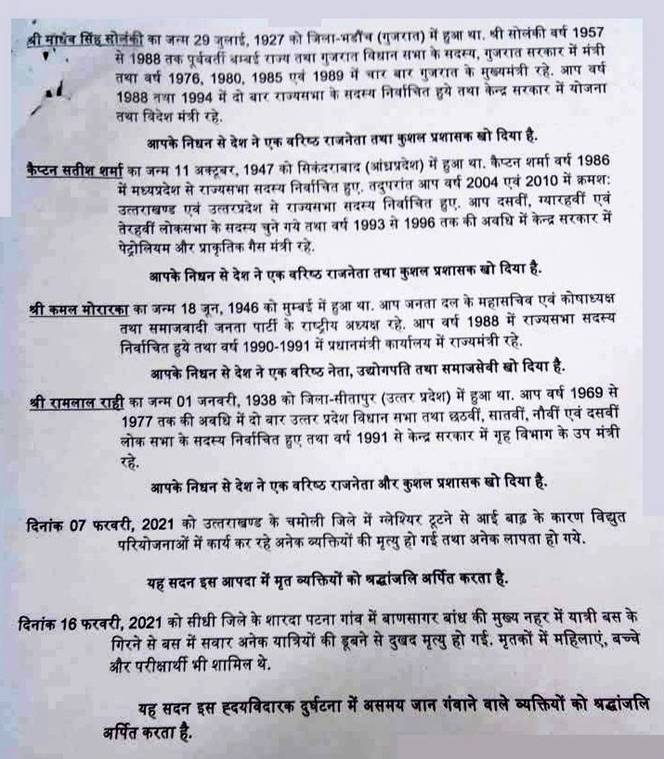 श्री माधव सिंह सोलंकी का जन्म 29 जुलाई, 1927 को जिला-भडौंच (गुजरात) में हुआ था. श्री सोलंकी वर्ष 1957
से 1988 तक पूर्ववर्ती बम्बई राज्य तथा गुजरात विधान सभा के सदस्य, गुजरात सरकार में मंत्री
तथा वर्ष 1976, 1980, 1985 एवं 1989 में चार बार गुजरात के मुख्यमंत्री रहे. आप वर्ष
1988 तथा 1994 में दो बार राज्यसभा के सदस्य निर्वाचित हुये तथा केन्द्र सरकार में योजना
तथा विदेश मंत्री रहे.
आपके निधन से देश ने एक वरिष्ठ राजनेता तथा कुशल प्रशासक खो दिया है.
कैप्टन सतीश शर्मा का जन्म 11 अक्टूबर, 1947 को सिकंदराबाद (आंध्रप्रदेश) में हुआ था. कैप्टन शर्मा वर्ष 1986
में मध्यप्रदेश से राज्यसभा सदस्य निर्वाचित हुए. तदुपरांत आप वर्ष 2004 एवं 2010 में क्रमश:
उत्तराखण्ड एवं उत्तरप्रदेश से राज्यसभा सदस्य निर्वाचित हुए. आप दसवीं, ग्यारहवीं एवं
तेरहवीं लोकसभा के सदस्य चुने गये तथा वर्ष 1993 से 1996 तक की अवधि में केन्द्र सरकार में
पेट्रोलियम और प्राकृतिक गैस मंत्री रहे.
आपके निधन से देश ने एक वरिष्ठ राजनेता तथा कुशल प्रशासक खो दिया है.
श्री कमल मोरारका का जन्म 18 जून, 1946 को मुम्बई में हुआ था. आप जनता दल के महासचिव एवं कोषाध्यक्ष
तथा समाजवादी जनता पार्टी के राष्ट्रीय अध्यक्ष रहे. आप वर्ष 1988 में राज्यसभा सदस्य
निर्वाचित हुये तथा वर्ष 1990-1991 में प्रधानमंत्री कार्यालय में राज्यमंत्री रहे.
आपके निधन से देश ने एक वरिष्ठ नेता, उद्योगपति तथा समाजसेवी खो दिया है.
श्री रामलाल राही का जन्म 01 जनवरी, 1938 को जिला-सीतापुर (उत्तर प्रदेश) में हुआ था. आप वर्ष 1969 से
1977 तक की अवधि में दो बार उत्तर प्रदेश विधान सभा तथा छठवीं, सातवीं, नौवीं एवं दसवीं
लोक सभा के सदस्य निर्वाचित हुए तथा वर्ष 1991 से केन्द्र सरकार में गृह विभाग के उप मंत्री
रहे.
आपके निधन से देश ने एक वरिष्ठ राजनेता और कुशल प्रशासक खो दिया है.
दिनांक 07 फरवरी, 2021 को उत्तराखण्ड के चमोली जिले में ग्लेशियर टूटने से आई बाढ़ के कारण विद्युत
परियोजनाओं में कार्य कर रहे अनेक व्यक्तियों की मृत्यु हो गई तथा अनेक लापता हो गये.
यह सदन इस आपदा में मृत व्यक्तियों को श्रद्धांजलि अर्पित करता है.
दिनांक 16 फरवरी, 2021 को सीधी जिले के शारदा पटना गांव में बाणसागर बांध की मुख्य नहर में यात्री बस के
गिरने से बस में सवार अनेक यात्रियों की डूबने से दुखद मृत्यु हो गई. मृतकों में महिलाएं, बच्चे
और परीक्षार्थी भी शामिल थे.
यह सदन इस ह्दयविदारक दुर्घटना में असमय जान गंवाने वाले व्यक्तियों को श्रद्धांजलि
अर्पित करता है.